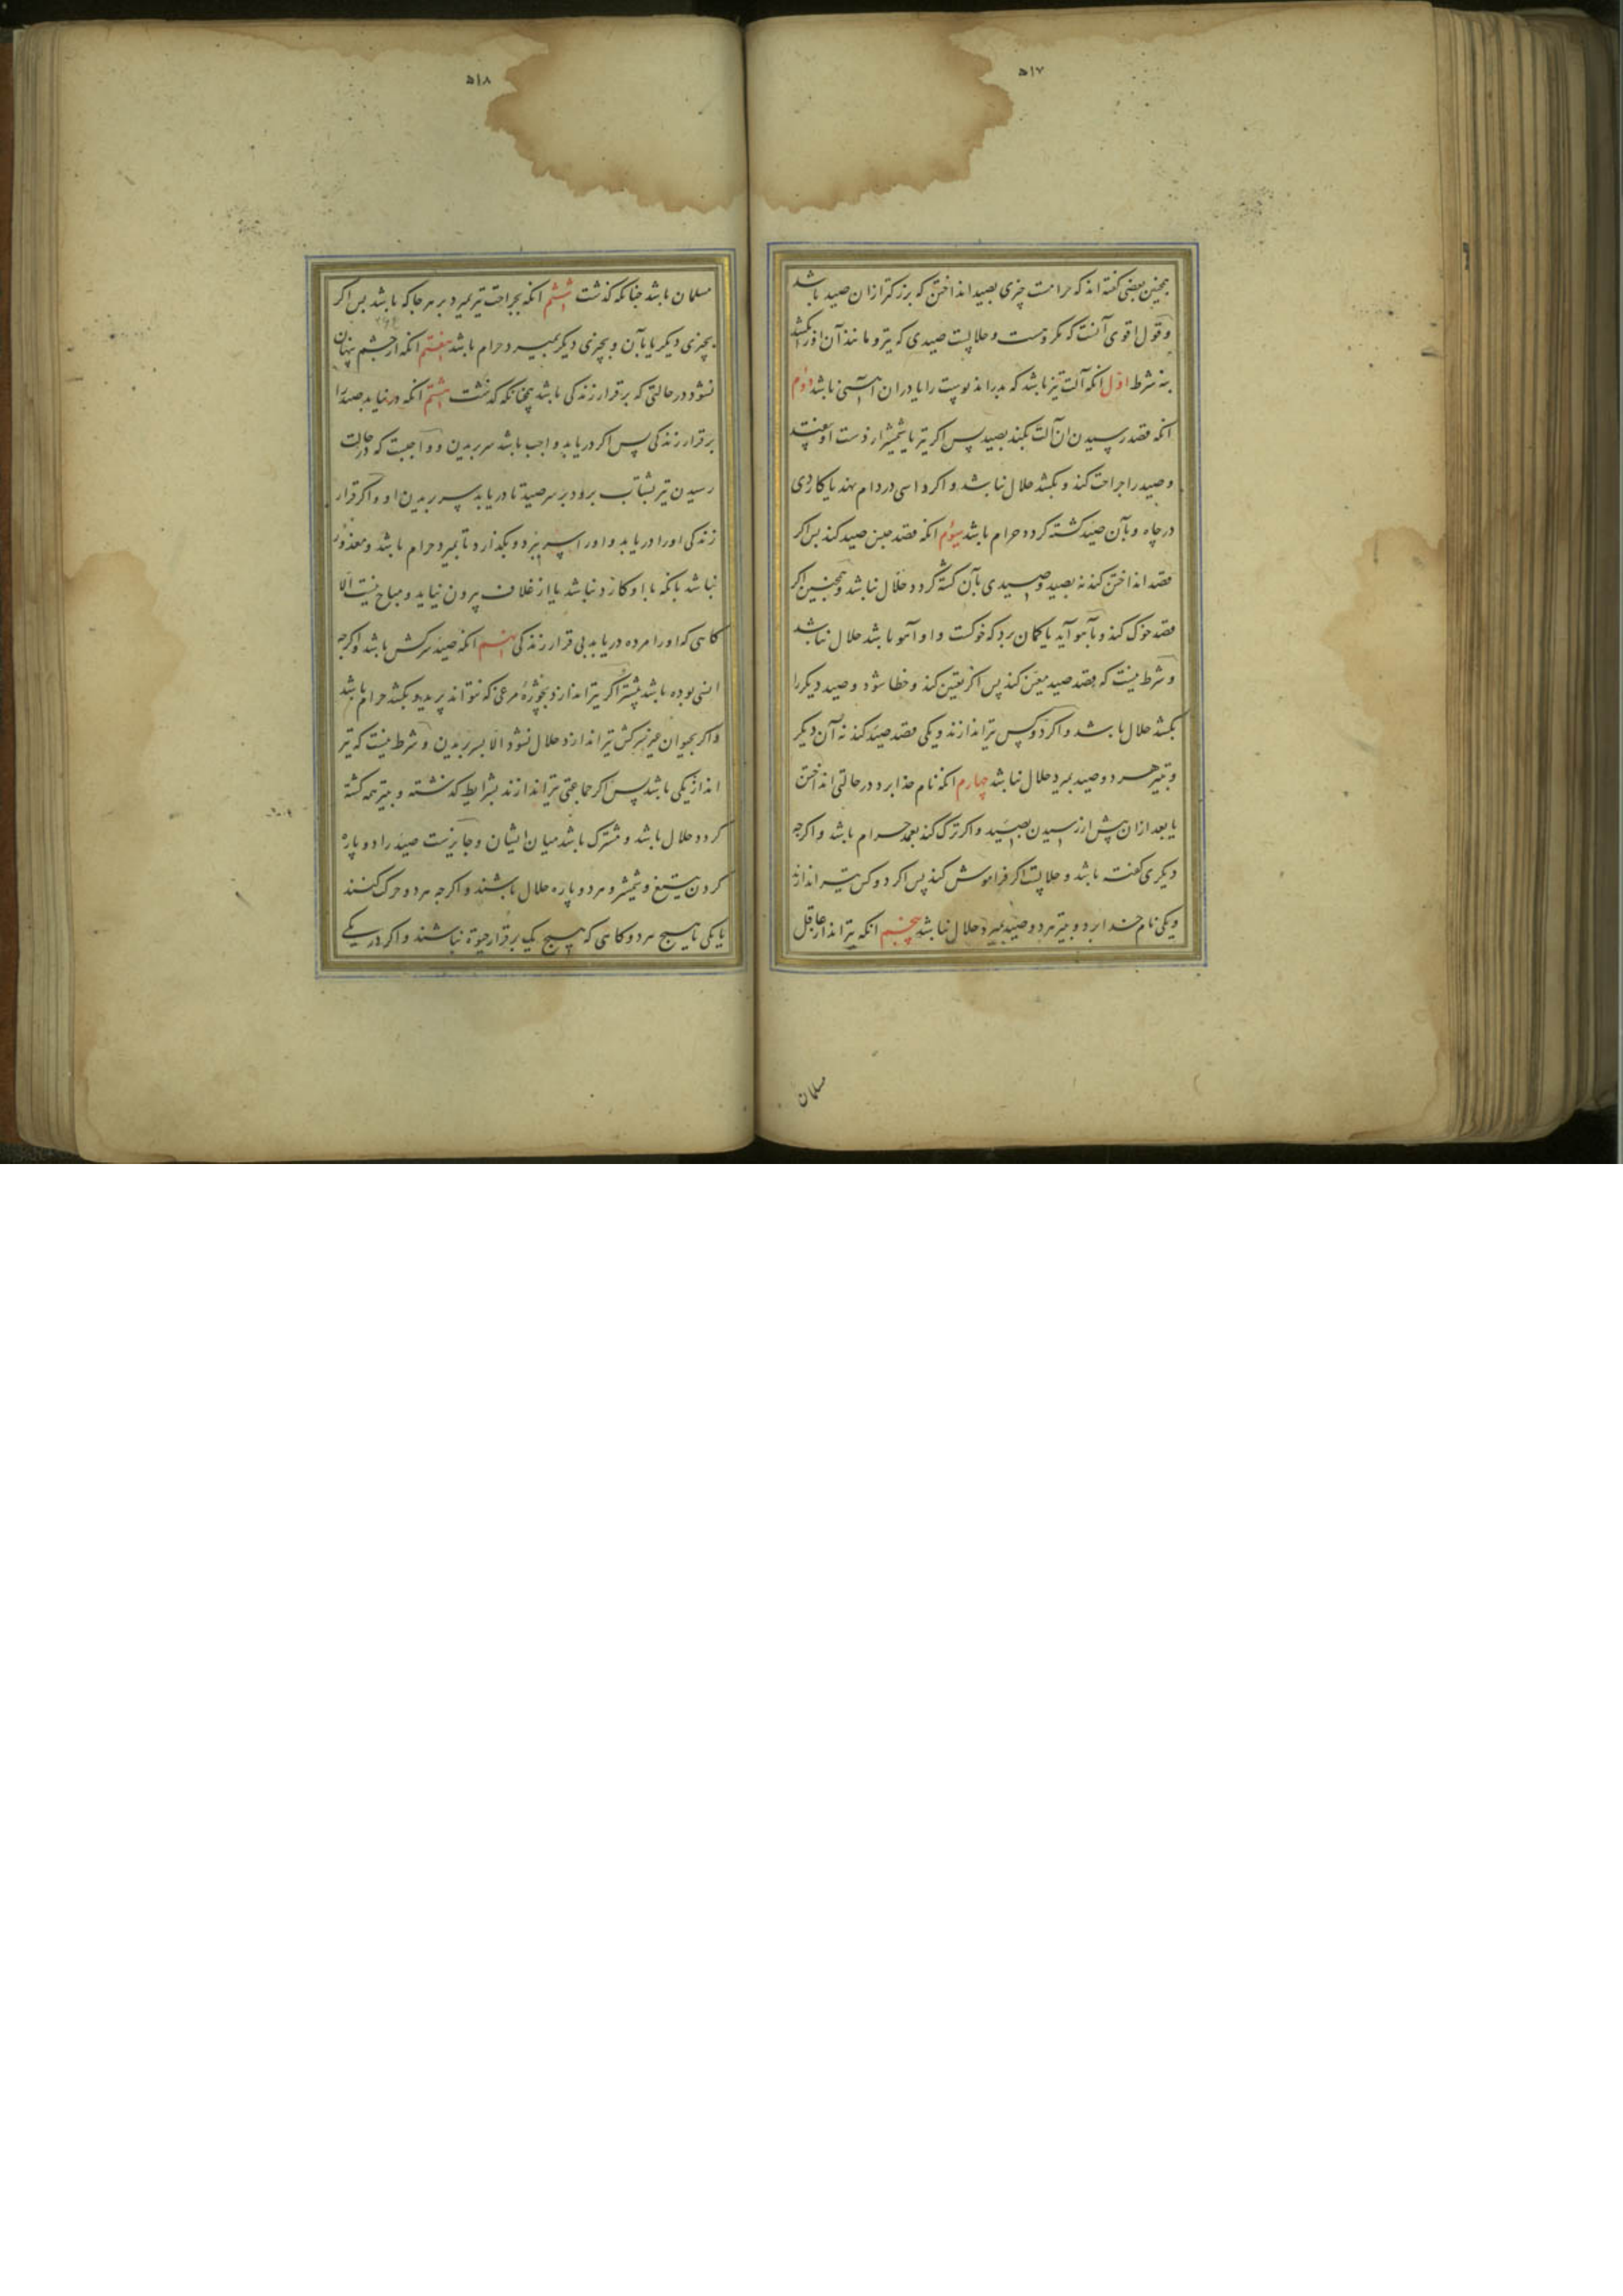 ۵۱۷
همچنین بعضی گفته اند که حرامست چیزی بصید انداختن که بزرکتر ازان صید باشد
و قول اقوی آنست که مکروهست و حلالست صیدی که تیر و مانند آن او را بکشد
بنه شرط اول انکه آلت تیز باشد که بدراند پوست را یا دران آهنی باشد دوم
انکه قصد رسیدن ان آلت بکند بصید پس اکر تیر یا شمشیر از دست او بیفتد
و صید را جراحت کند و بکشد حلال نباشد و اکر داسی در دام نهد یا کاردی
در چاه و بآن صید کشته کردد حرام باشد سیوم انکه قصد جنس صید کند پس اکر
قصد انداختن کند نه بصید و صیدی بآن کشته کردد حلال نباشد و همچنین اکر
قصد خوک کند و بآهو آید یا کمان برد که خوکست و او آهو باشد حلال نباشد
و شرط نیست که قصد صید معین کند پس اکر تعیین کند و خطا شود و صید دیکر را
بکشد حلال باشد و اکر دو کس تیر اندازند و یکی قصد صید کند نه آن دیکر
و بتیر هر دو صید بمیرد حلال نباشد چهارم انکه نام خدا برد در حالتی انداختن
یا بعد ازان پیش از رسیدن بصید و اکر ترک کند بعمد حرام باشد و اکرچه
دیکری کفته باشد و حلالست اکر فراموش کند پس اکر دو کس تیر اندازند
و یکی نام خدا برد و بتیر هر دو صید بمیرد حلال نباشد پنجم انکه تیرانداز عاقل
مسلمان
۵۱۸
مسلمان باشد چنانکه کذشت ششم انکه بجراحت تیر بمیرد بر هر جا که باشد پس اکر
بچیزی دیکر یا بآن و بچیزی دیکر بمیرد حرام باشد هفتم انکه از چشم پنهان
نشود در حالتی که برقرار زندکی باشد همچنانکه کذشت هشتم انکه در نیابد صید را
برقرار زندکی پس اکر دریابد واجب باشد سر بریدن و واجبست که در حالت
رسیدن تیر بشتاب برود بر سر صید تا دریابد سر بریدن او و اکر قرار
زندکی او را دریابد و او را سر نبرد و بکذارد تا بمیرد حرام باشد و معذور
نباشد بانکه با او کارد نباشد یا از غلاف بیرون نیاید و مباح نیست الا
کاهی که او را مرده دریابد بی قرار زندکی نهم انکه صید سرکش باشد و اکرچه
انسی بوده باشد پیشتر اکر تیر اندازد بخوژهٔ مرغی که نتواند پرید و بکشد حرام باشد
و اکر بحیوان غیر سرکش تیر اندازد حلال نشود الا بسر بریدن و شرط نیست که تیر
انداز یکی باشد پس اکر جماعتی تیر اندازند بشرایط کذشته و بتیر همه کشته
کردد حلال باشد و مشترک باشد میان ایشان و جایزست صید را دو پاره
کردن بتیغ و شمشیر و هر دو پاره حلال باشند و اکرچه هر دو حرکت کنند
یا یکی یا هیچ هر دو کاهی که هیچ یک برقرار حیوة نباشند و اکر در یکی